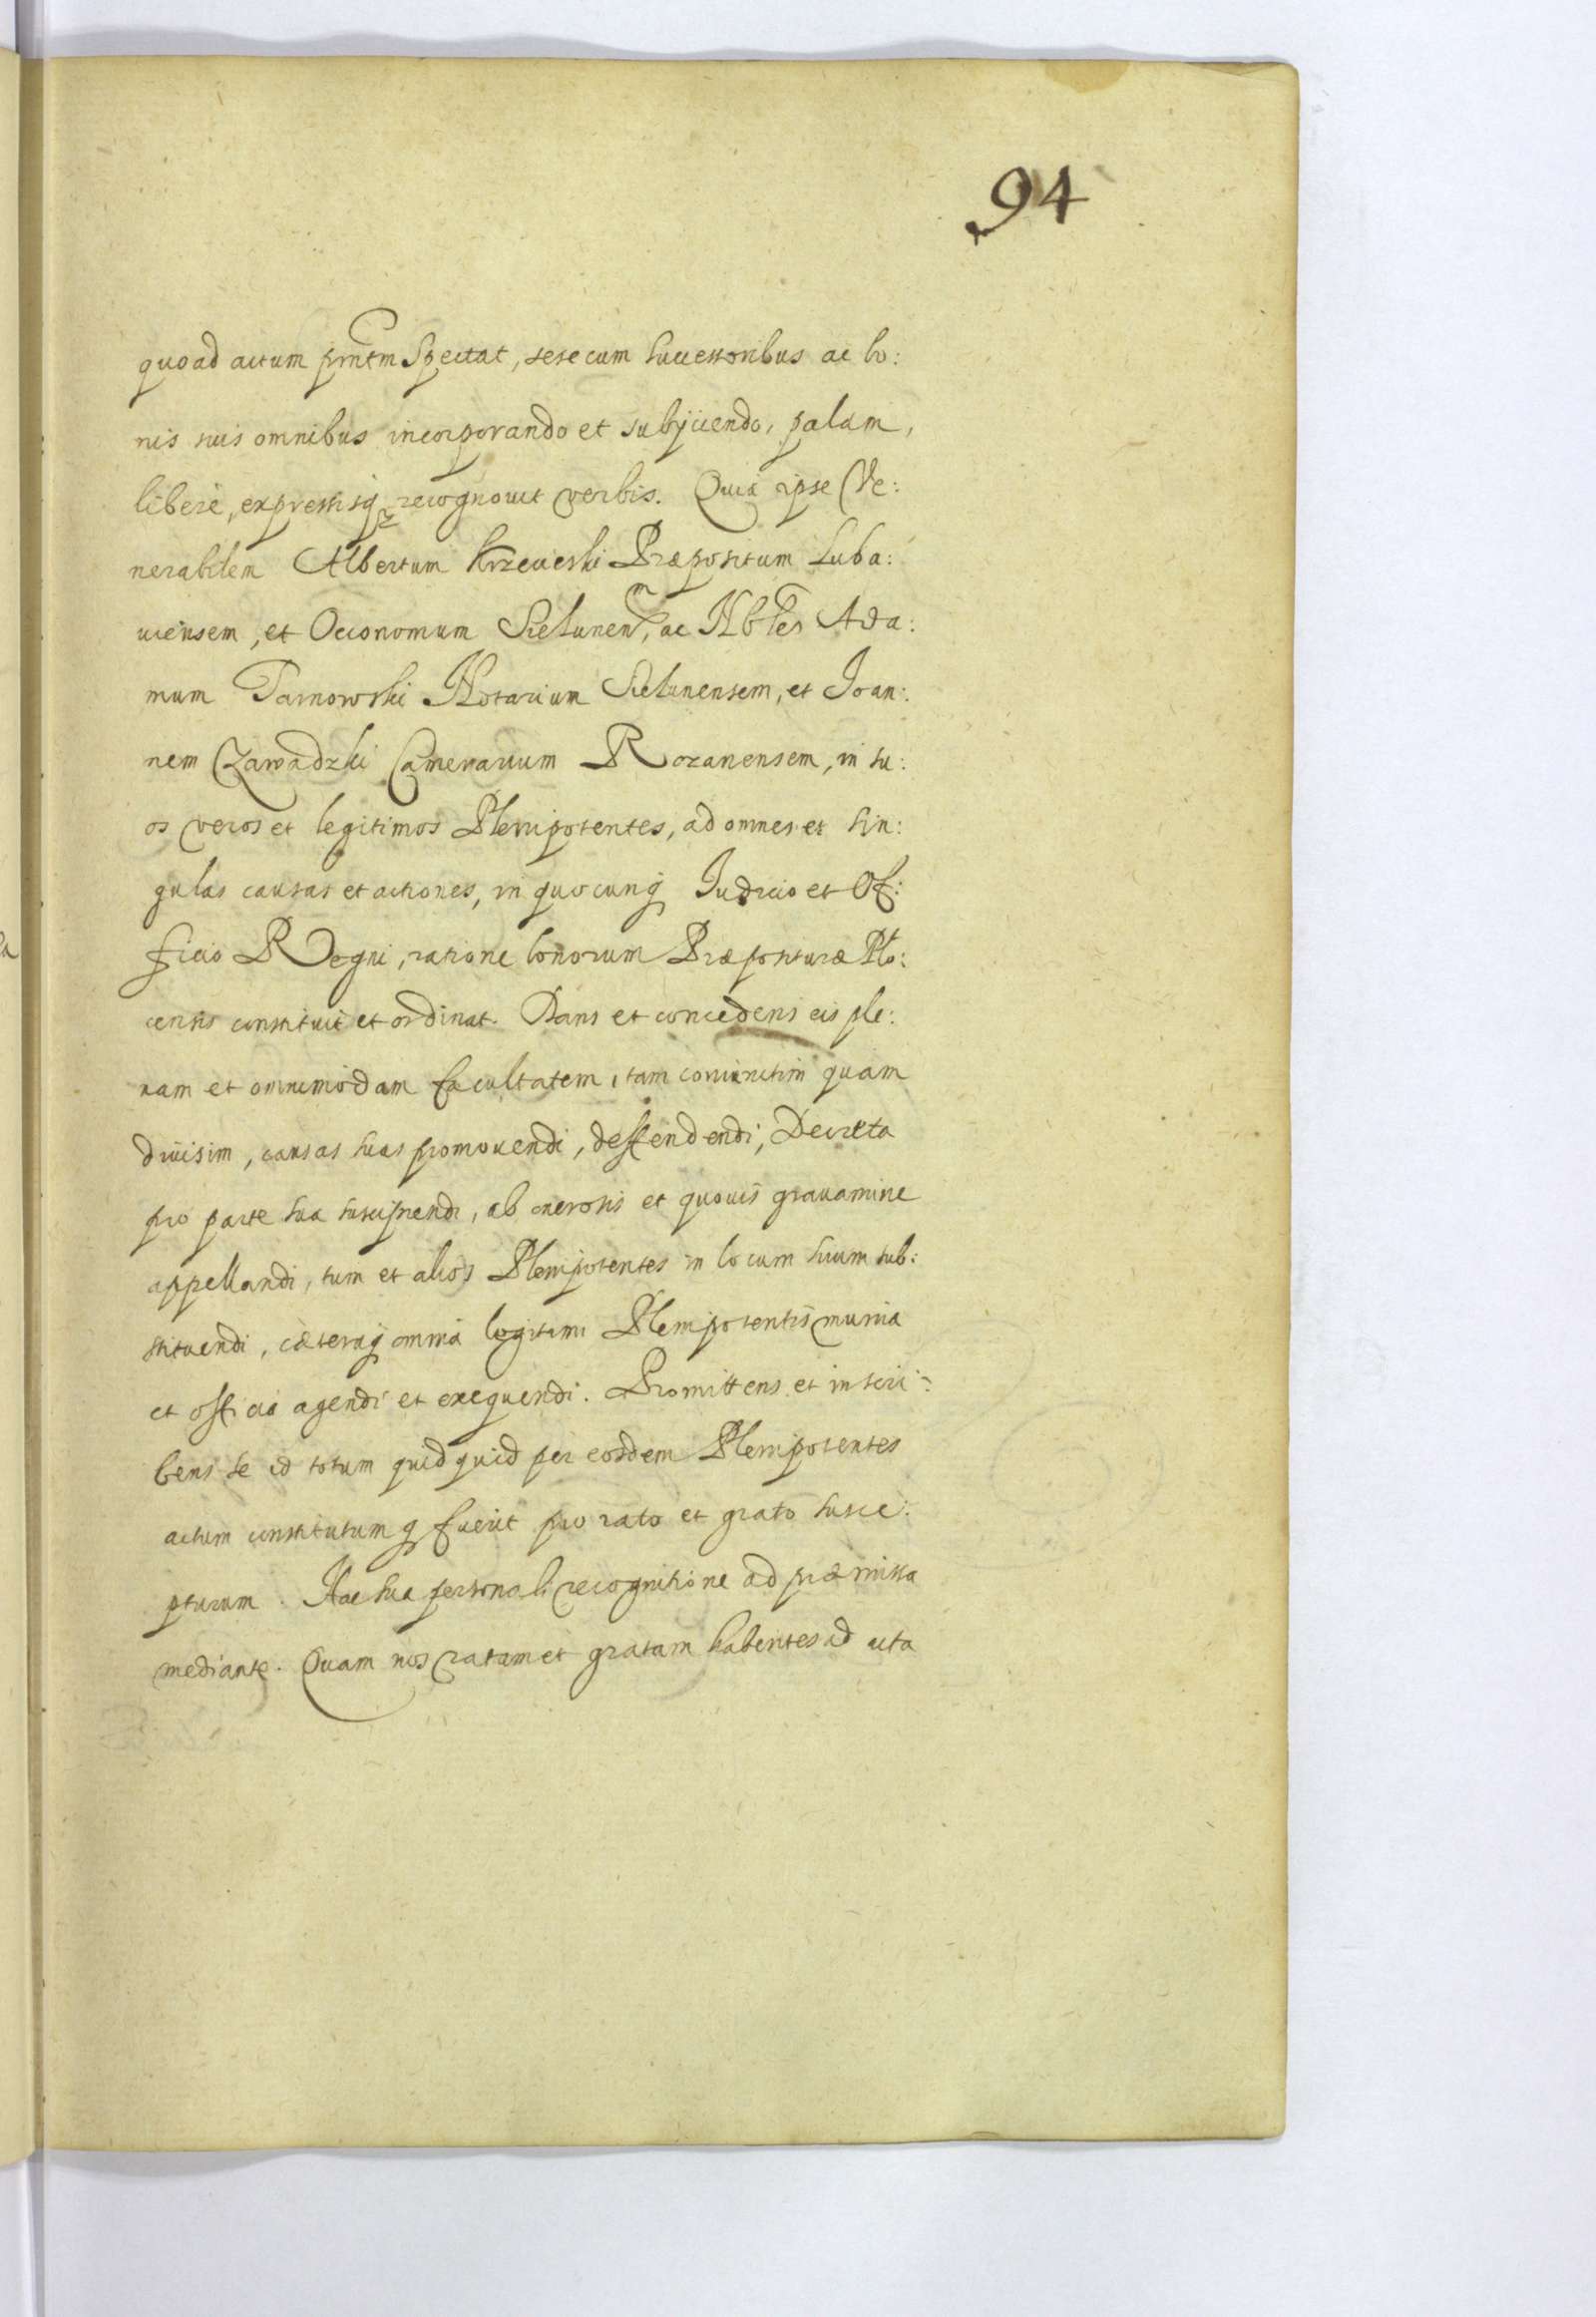 94
quoad actum pñtm Spectat, sese cum successoribus ac bo:
nis suis omnibus incorporando et subyciendo, palam,
liberè, expressisq recognouit verbis. Quia ipse Ve:
nerabilem Albertum Krzeueski Præpositum Luba:
uiensem, et Oeconomum Sielunenm, ac Nbles Ada:
mum Tarnowski Notarium Sielunensem, et Ioan:
nem Zawadzki Camerarium Rozanensem, in su:
os veros et legitimos Plenipotentes, ad omnes et sin:
gulas causas et actiones, in quocunq Iudicio et Of:
ficio Regni, ratione bonorum Præposituræ Plo:
censis constituit et ordinat. Dans et concedens eis ple:
nam et omnimodam facultatem, tam coniunctim quam
diuisim, causas suas promouendi, deffendendi, Decreta
pro parte sua suscipiendi, ab onerosis et quouis grauamine
appellandi, tum et alios Plenipotentes in locum suum sub:
stituendi, cæteraq omnia legitimi Plenipotentis munia
et officia agendi et exequendi. Promittens et inscri:
bens se id totum quidquid per eosdem Plenipotentes
actum constitutumq fuerit pro rato et grato susce:
pturum. Hac sua personali recognitione ad præmissa
mediante. Quam nos ratam et gratam habentes ad acta